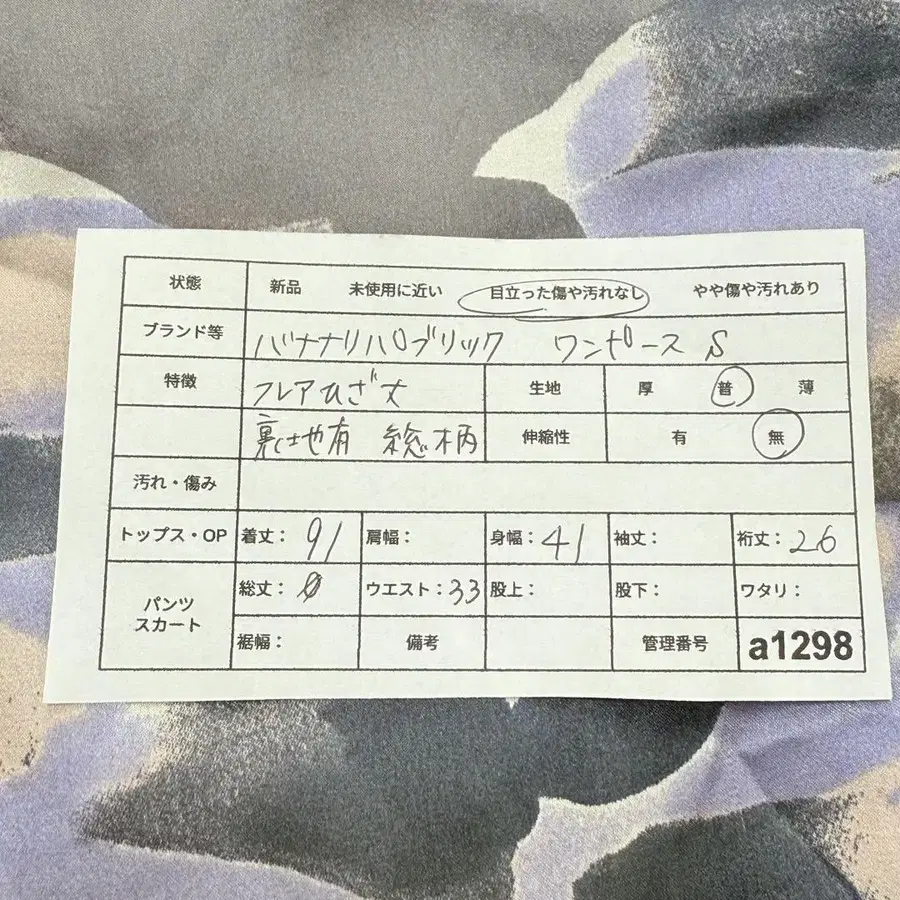 状態 新品 未使用に近い 目立った傷や汚れなし やや傷や汚れあり
ブランド等 バナナリパブリック ワンピース S
特徴 フレアひざ丈 生地 厚 普 薄
裏地有 総柄 伸縮性 有 無
汚れ・傷み
トップス・OP 着丈：91 肩幅： 身幅：41 袖丈： 裄丈：26
パンツ
スカート
総丈： ウエスト：33 股上： 股下： ワタリ：
裾幅： 備考 管理番号 a1298